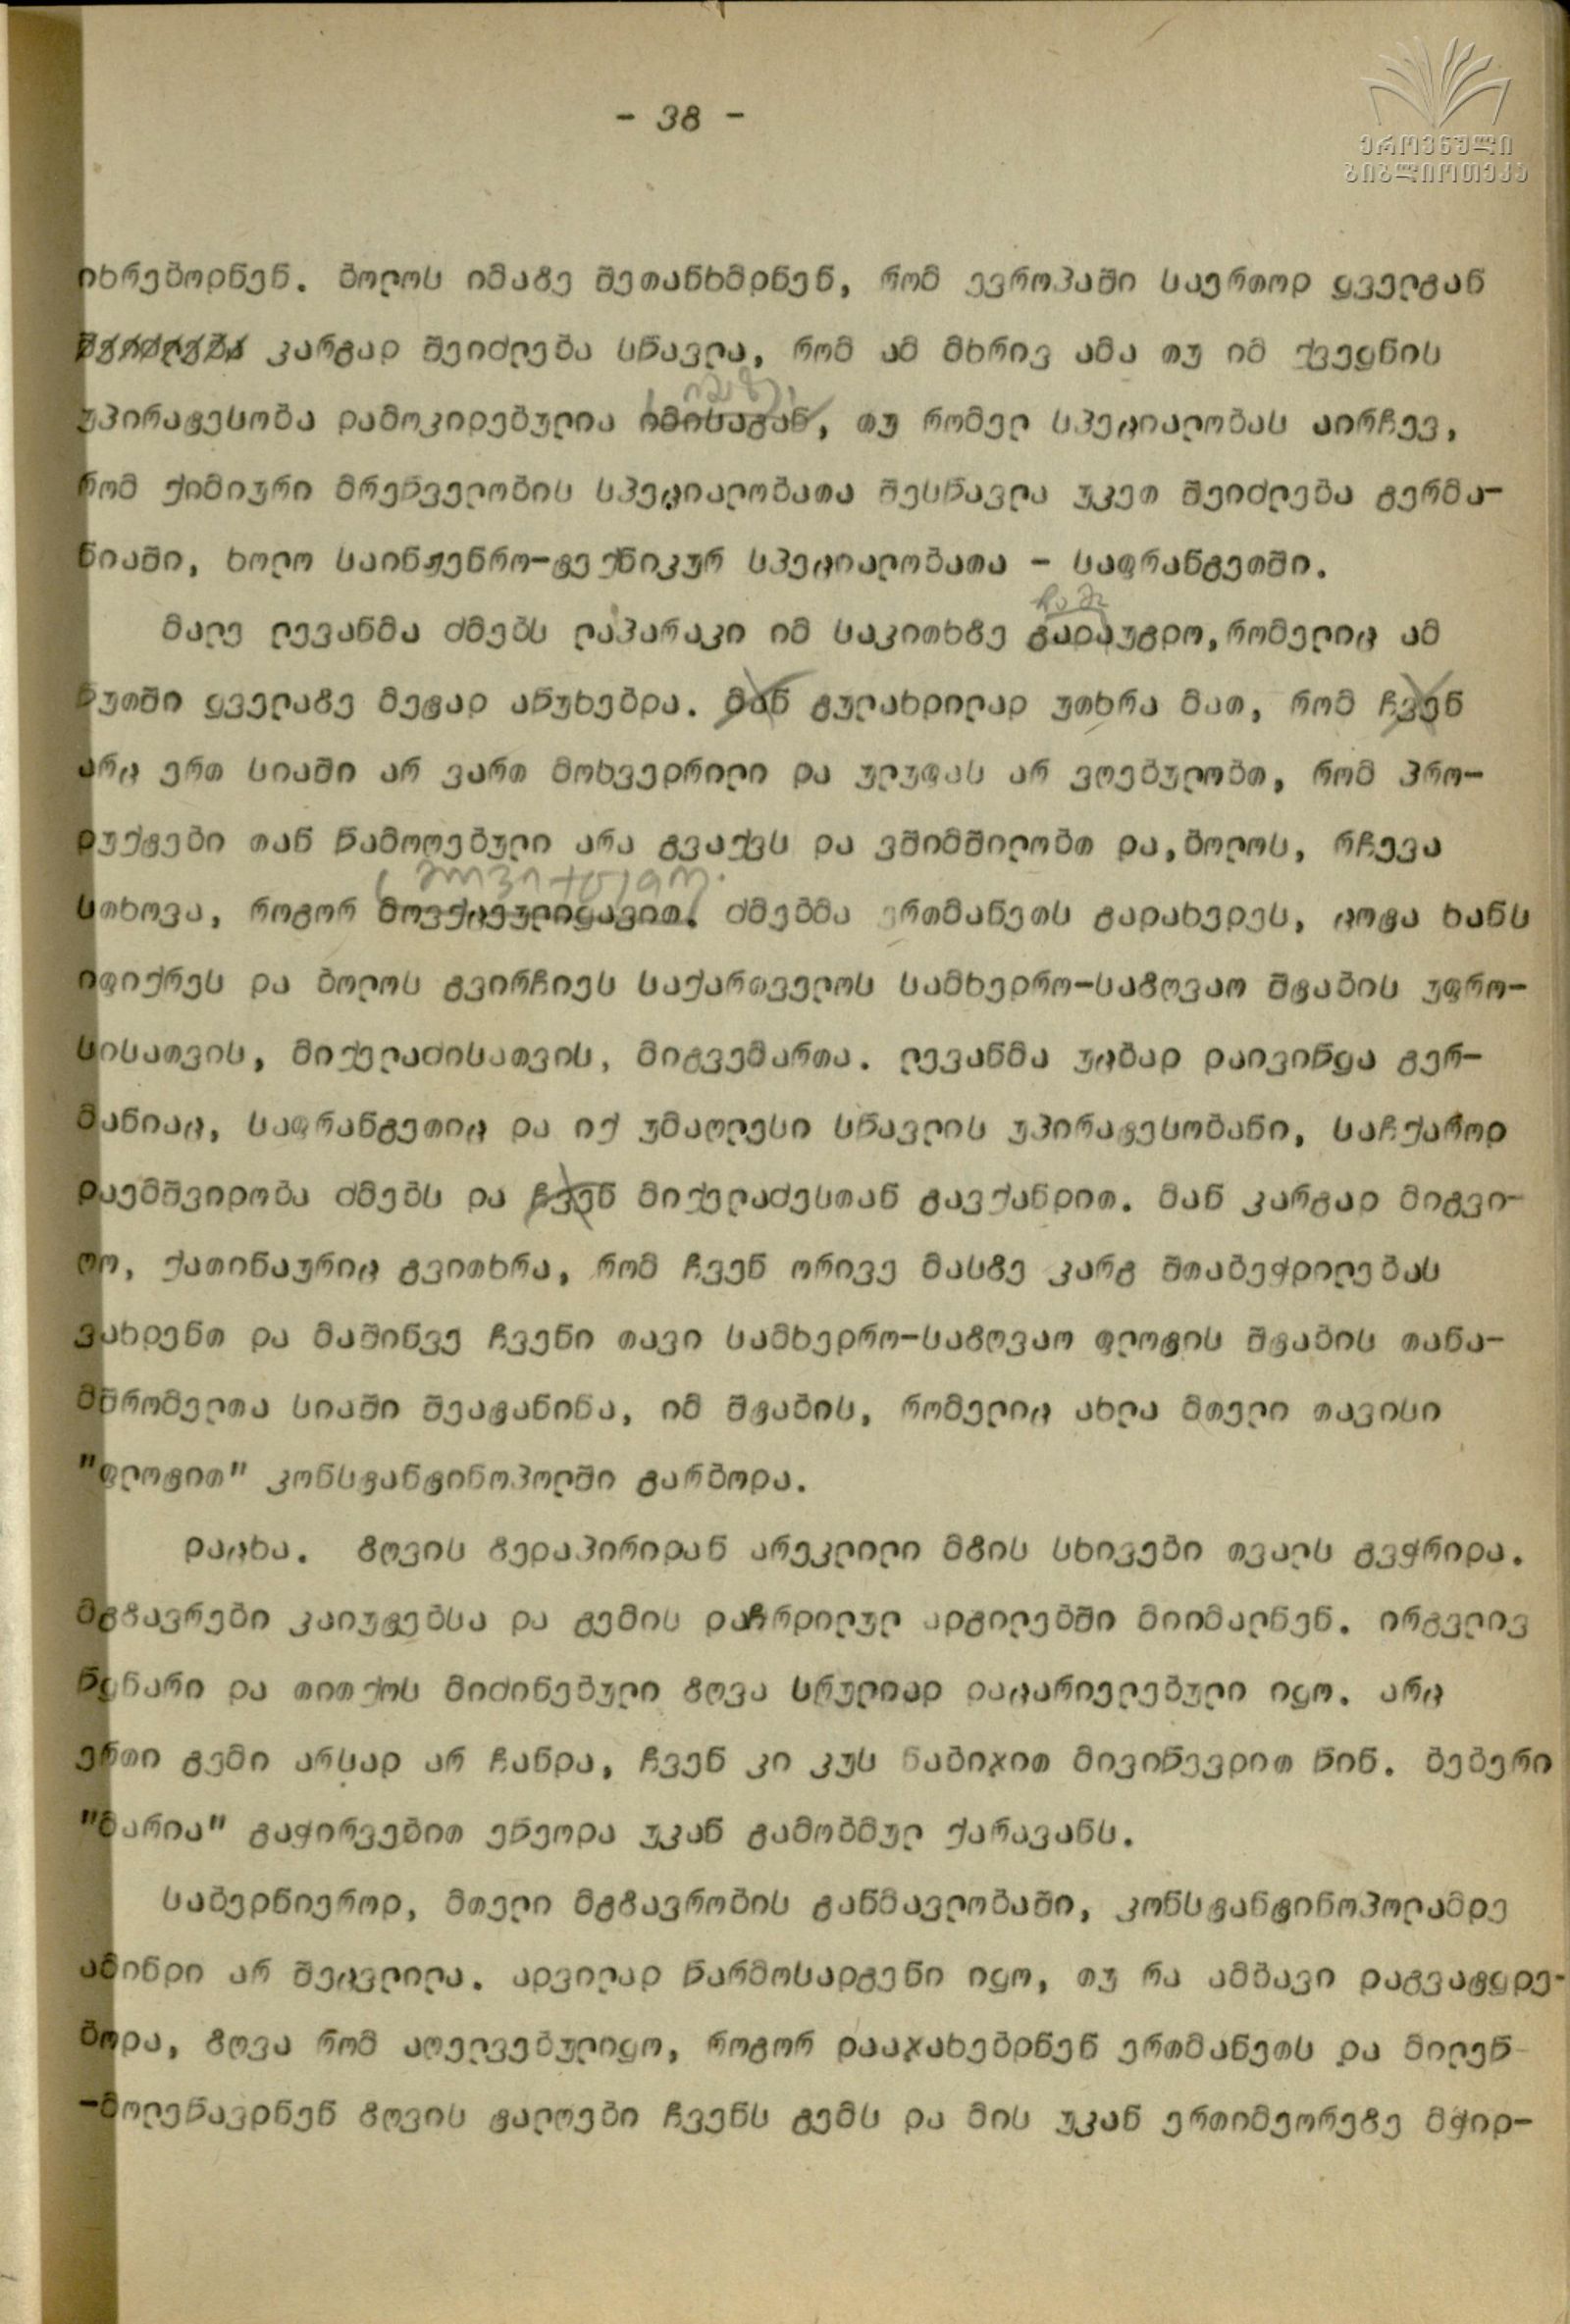 - 38 -
ეროვნული
ბიბლიოთეკა
იხრებოდნენ. ბოლოს იმაზე შეთანხმდნენ, რომ ევროპაში საერთოდ ყველგან
კარგად შეიძლება სწავლა, რომ ამ მხრივ ამა თუ იმ ქვეყნის
იმაზე
უპირატესობა დამოკიდებულია იმისაგან, თუ რომელ სპეციალობას აირჩევ,
რომ ქიმიური მრეწველობის სპეციალობათა შესწავლა უკეთ შეიძლება გერმა-
ნიაში, ხოლო საინჟენრო-ტექნიკურ სპეციალობათა - საფრანგეთში.
ჩამ
მალე ლევანმა ძმებს ლაპარაკი იმ საკითხზე გადაუგდო, რომელიც ამ
წუთში ყველაზე მეტად აწუხებდა. მან გულახდილად უთხრა მათ, რომ ჩვენ
არც ერთ სიაში არ ვართ მოხვედრილი და ულუფას არ ვღებულობთ, რომ პრო-
დუქტები თან წამოღებული არა გვაქვს და ვშიმშილობთ და, ბოლოს, რჩევა
სთხოვა, როგორ მოვქცეულიყავით. ძმებმა ერთმანეთს გადახედეს, ცოტა ხანს
იფიქრეს და ბოლოს გვირჩიეს საქართველოს სამხედრო-საზღვაო შტაბის უფრო-
სისათვის, მიქელაძისათვის, მიგვემართა. ლევანმა უცბად დაივიწყა გერ-
მანიაც, საფრანგეთიც და იქ უმაღლესი სწავლის უპირატესობანი, საჩქაროდ
დაემშვიდობა ძმებს და ჩვენ მიქელაძესთან გავქანდით. მან კარგად მიგვი-
ღო, ქათინაურიც გვითხრა, რომ ჩვენ ორივე მასზე კარგ შთაბეჭდილებას
ვახდენთ და მაშინვე ჩვენი თავი სამხედრო-საზღვაო ფლოტის შტაბის თანა-
მშრომელთა სიაში შეატანინა, იმ შტაბის, რომელიც ახლა მთელი თავისი
"ფლოტით" კონსტანტინოპოლში გარბოდა.
დაცხა. ზღვის ზედაპირიდან არეკლილი მზის სხივები თვალს გვჭრიდა.
მგზავრები კაიუტებსა და გემის დაჩრდილულ ადგილებში მიიმალნენ. ირგვლივ
წყნარი და თითქოს მიძინებული ზღვა სრულიად დაცარიელებული იყო. არც
ერთი გემი არსად არ ჩანდა, ჩვენ კი კუს ნაბიჯით მივიწევდით წინ. ბებერი
"მარია" გაჭირვებით ეწეოდა უკან გამობმულ ქარავანს.
საბედნიეროდ, მთელი მგზავრობის განმავლობაში, კონსტანტინოპოლამდე
ამინდი არ შეცვლილა. ადვილად წარმოსადგენი იყო, თუ რა ამბავი დაგვატყდე-
ბოდა, ზღვა რომ აღელვებულიყო, როგორ დააჯახებდნენ ერთმანეთს და მილეწ-
-მოლეწავდნენ ზღვის ტალღები ჩვენს გემს და მის უკან ერთიმეორეზე მჭიდ-